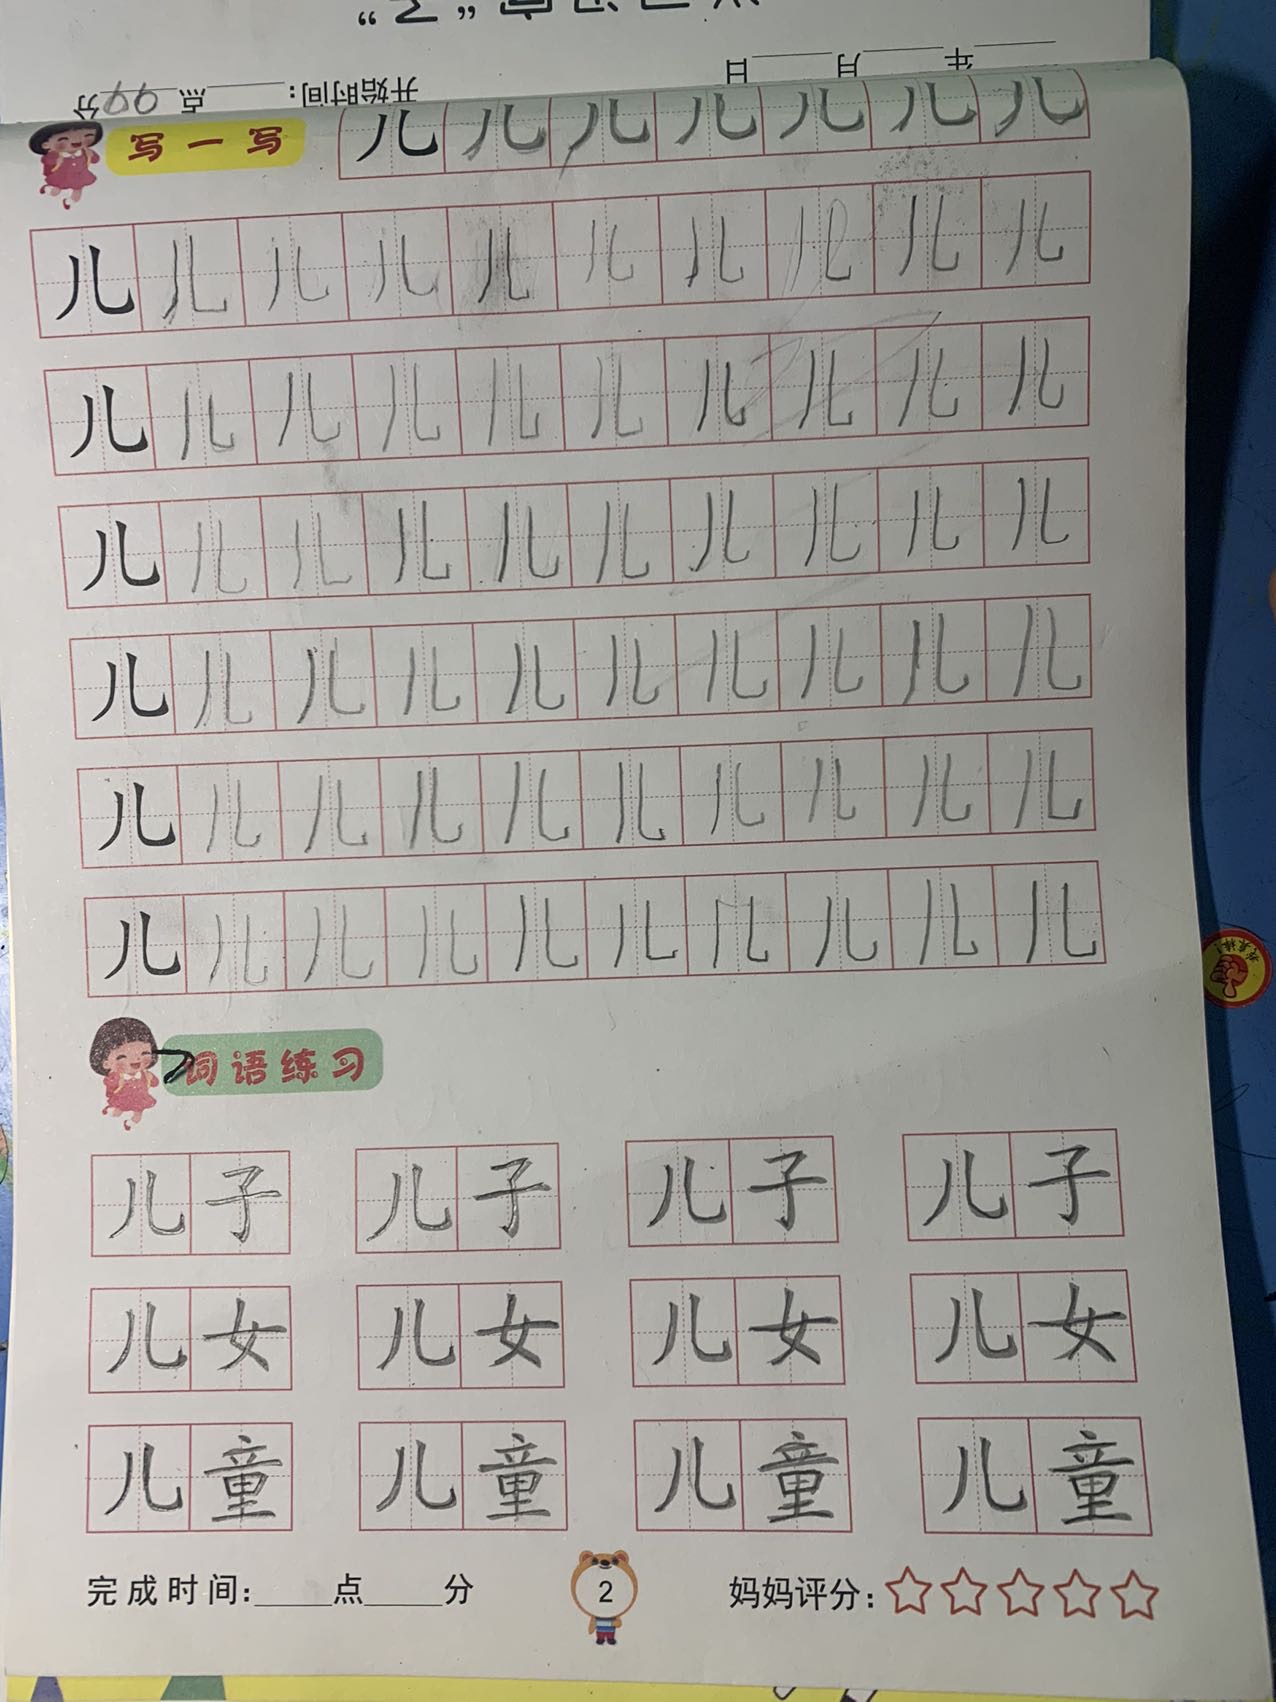 年 月 日 开始时间: 点 分
写一写 儿儿儿儿儿儿儿
儿儿儿儿儿儿儿儿儿儿
儿儿儿儿儿儿儿儿儿儿
儿儿儿儿儿儿儿儿儿儿
儿儿儿儿儿儿儿儿儿儿
儿儿儿儿儿儿儿儿儿儿
儿儿儿儿儿儿儿儿儿儿
词语练习
儿子 儿子 儿子 儿子
儿女 儿女 儿女 儿女
儿童 儿童 儿童 儿童
完成时间:____点____分 2 妈妈评分: